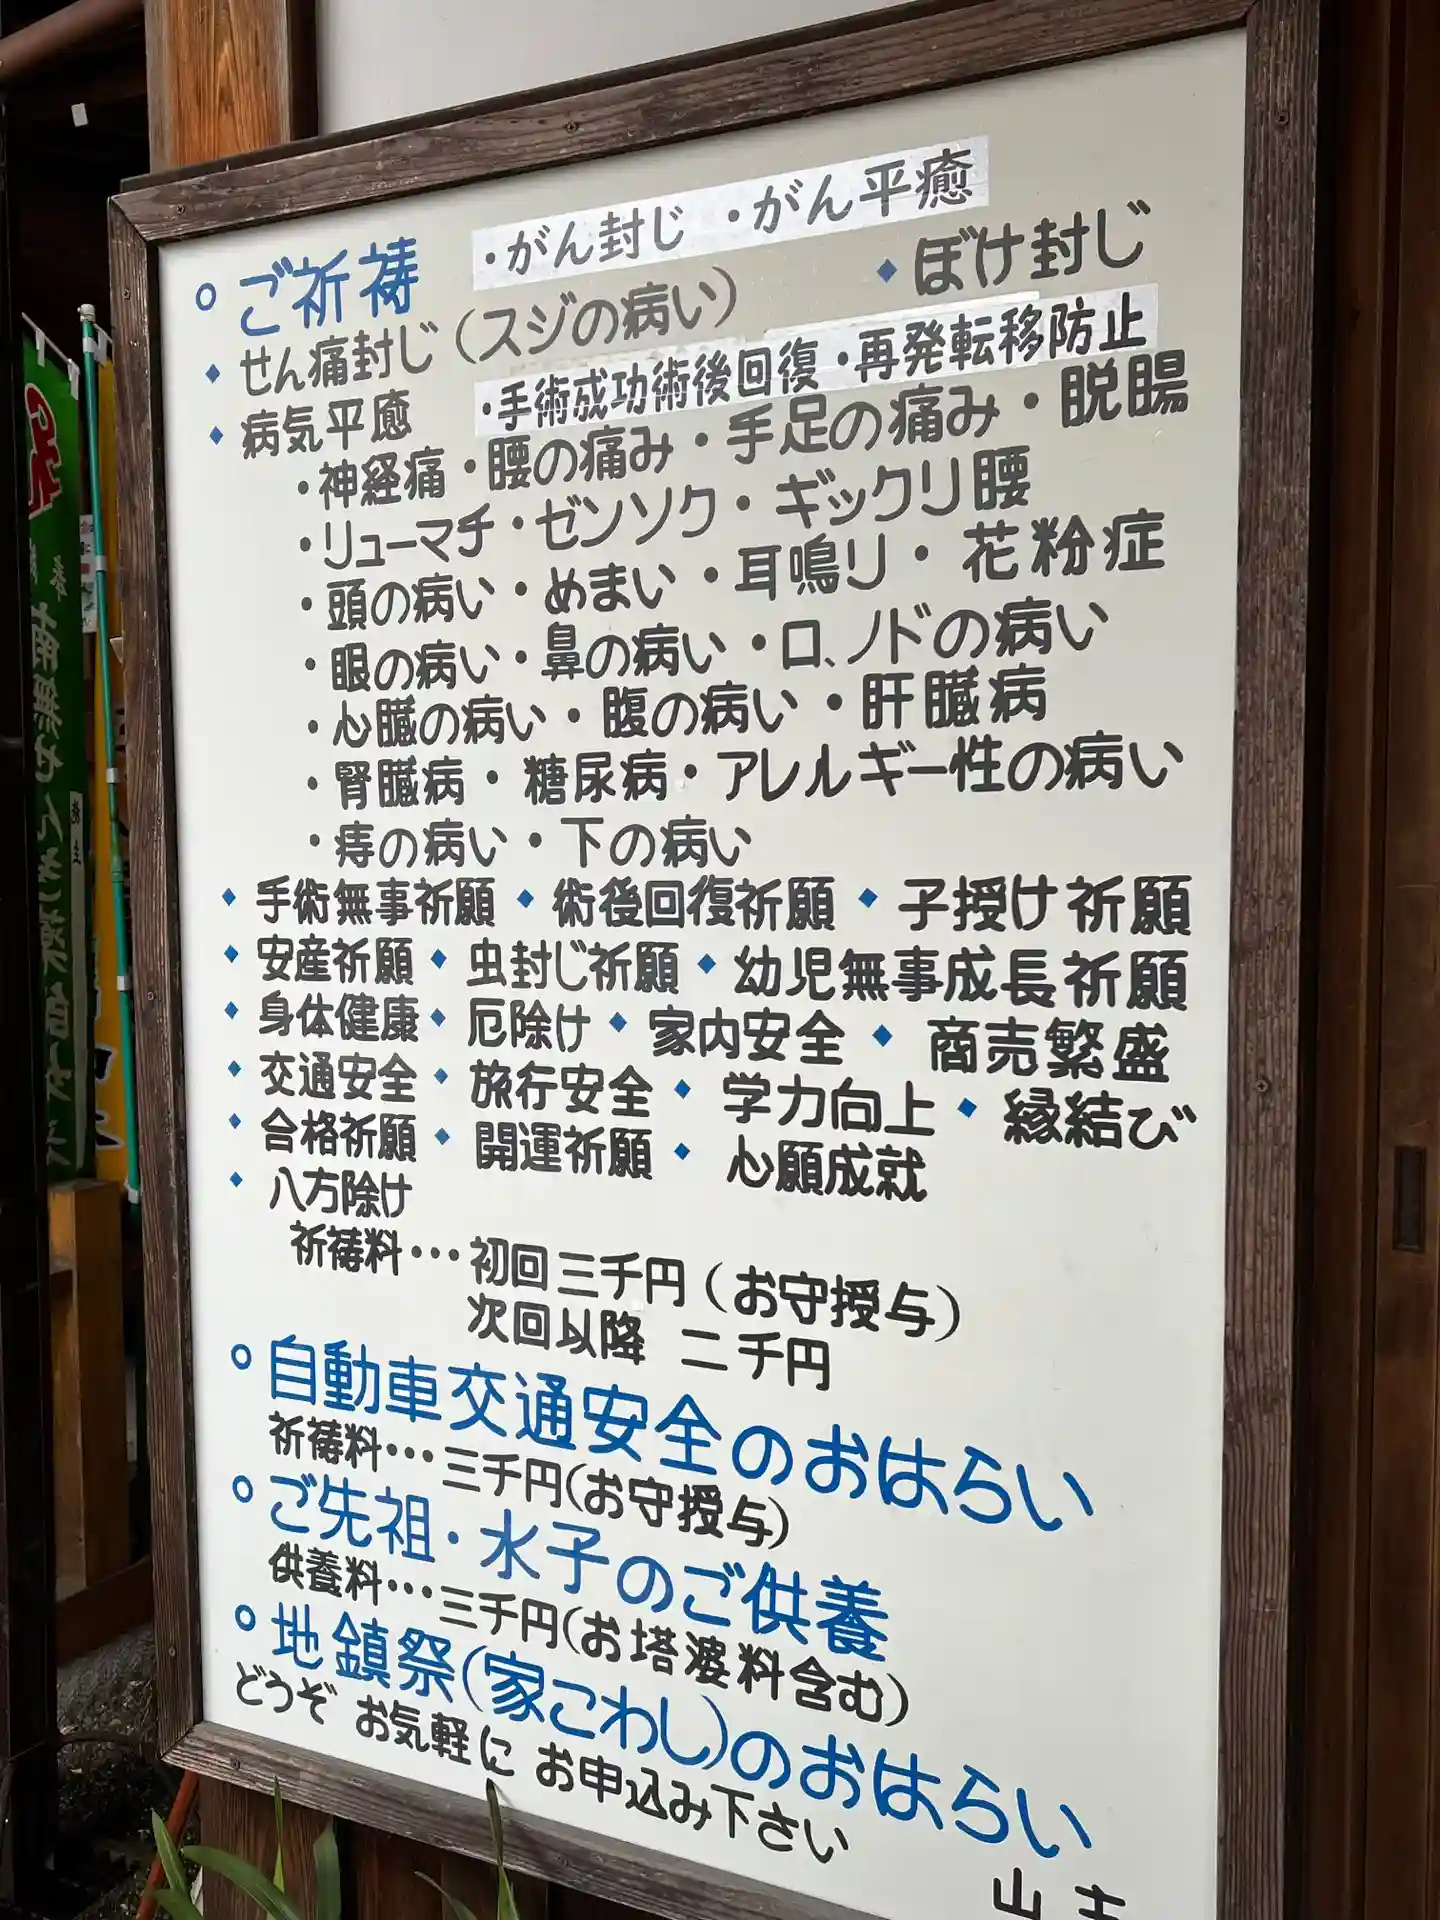 ・がん封じ ・がん平癒
○ご祈祷
◆せん痛封じ(スジの病い) ◆ぼけ封じ
◆病気平癒 ・手術成功術後回復・再発転移防止
・神経痛・腰の痛み・手足の痛み・脱腸
・リューマチ・ゼンソク・ギックリ腰
・頭の病い・めまい・耳鳴り・花粉症
・眼の病い・鼻の病い・口、ノドの病い
・心臓の病い・腹の病い・肝臓病
・腎臓病・糖尿病・アレルギー性の病い
・痔の病い・下の病い
◆手術無事祈願◆術後回復祈願◆子授け祈願
◆安産祈願◆虫封じ祈願◆幼児無事成長祈願
◆身体健康◆厄除け◆家内安全◆商売繁盛
◆交通安全◆旅行安全◆学力向上◆縁結び
◆合格祈願◆開運祈願◆心願成就
◆八方除け
祈祷料…初回三千円(お守授与)
次回以降 二千円
○自動車交通安全のおはらい
祈祷料…三千円(お守授与)
○ご先祖・水子のご供養
供養料…三千円(お塔婆料含む)
○地鎮祭(家こわし)のおはらい
どうぞ お気軽に お申込み下さい
山主